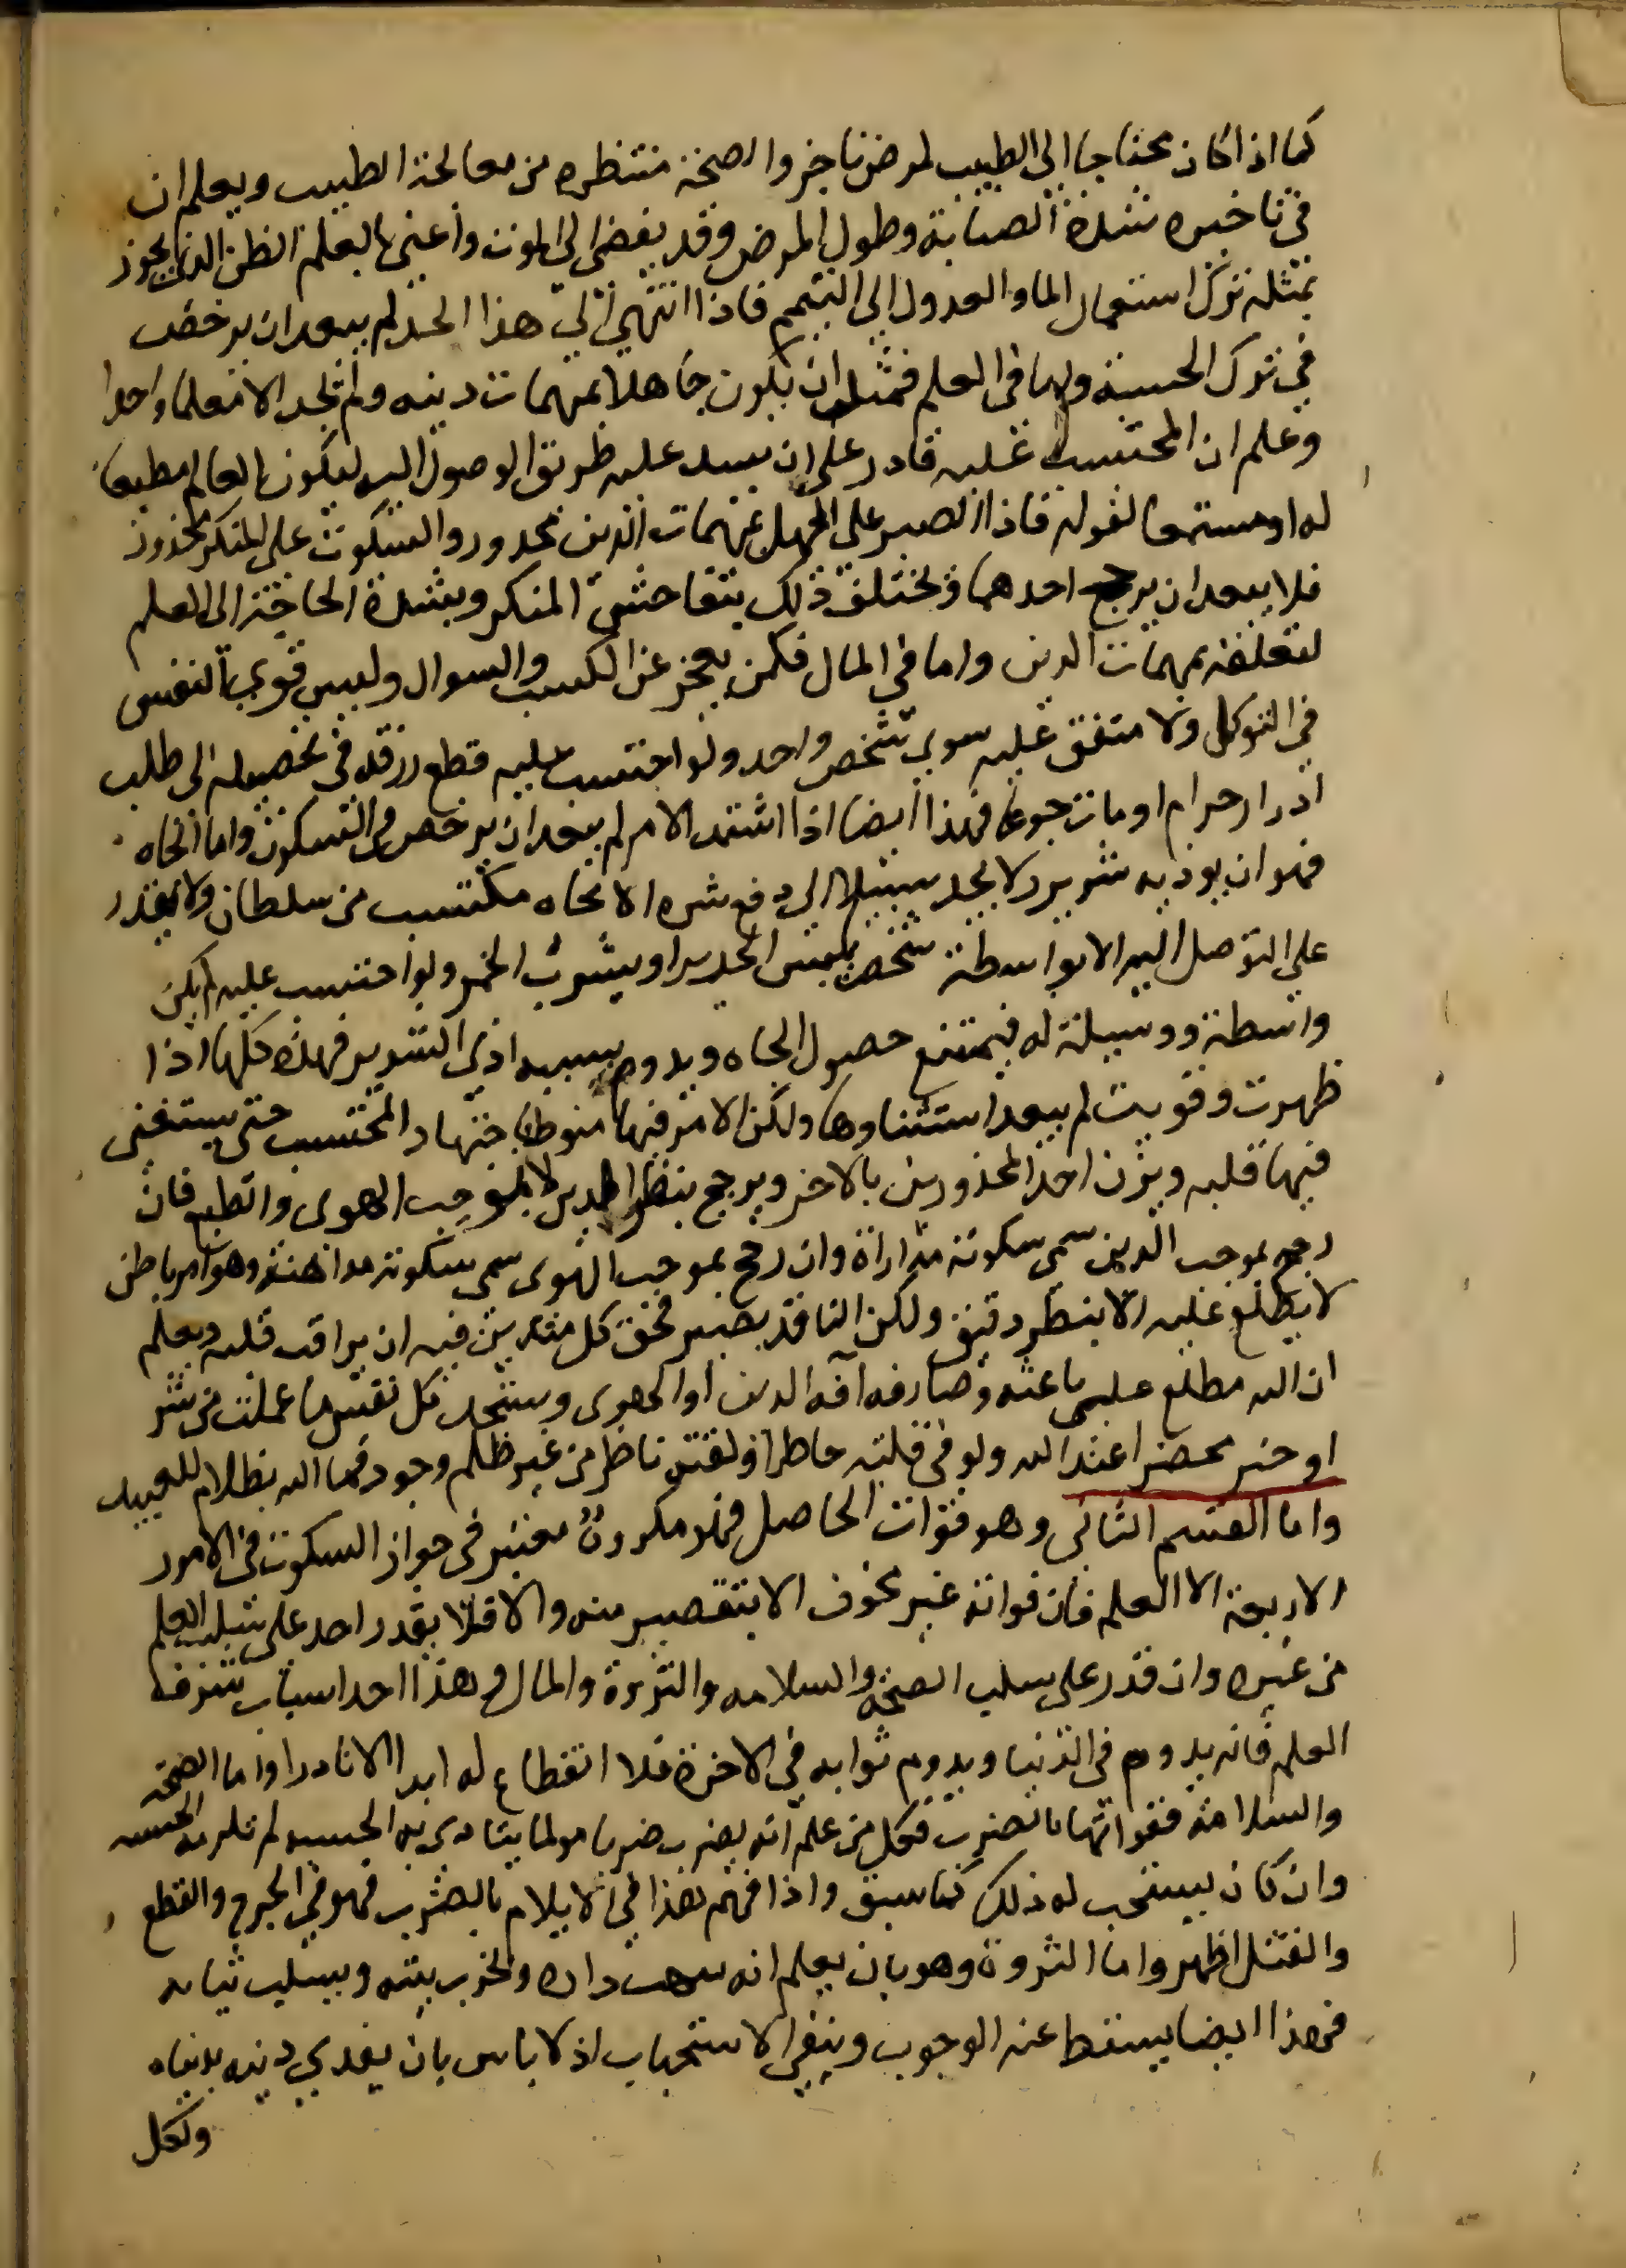 كما اذا كان محتاجا الى الطبيب لمرض ناجز والصحة منتظره من معالجة الطبيب ويعلم ان
في تاخيره شدة الضنا به وطول المرض وقد يفضى الى الموت واعنى بالعلم الظن الذى يجوز
بمثله ترك استعمال الما والعدول الى التيمم فاذا انتهى الى هذا الحد لم يبعد ان يرخص
في ترك الحسبة واما في العلم فمثل ان يكون جاهلا بمهمات دينه ولم يجد الا معلما واحدا
وعلم ان المحتسب عليه قادر على ان يسد عليه طريق الوصول اليه ليكون العالم مطيعا
له او مستمعا لقوله فاذا الصبر على الجهل بمهمات الدين محذور والسكوت على المنكر محذور
فلا يبعد ان يرجح احدهما ويختلف ذلك بتفاحش المنكر وبشدة الحاجة الى العلم
لتعلقه بمهمات الدين واما في المال فكمن يعجز عن الكسب والسوال وليس قوي النفس
في التوكل ولا منفق عليه سوى شخص واحد ولو احتسب عليه قطع رزقه في تحصيله الى طلب
ادرار حرام او مات جوعا فهذا ايضا اذا اشتد الامر لم يبعد ان يرخص في السكوت واما الجاه
فهو ان يوذيه شرير ولا يجد سبيلا الى دفع شره الا بجاه مكتسب من سلطان ولا يقدر
على التوصل اليه الا بواسطة شخص يلبس الحرير او يشرب الخمر ولو احتسب عليه لم يكن
واسطة ووسيلة له فيمتنع حصول الجاه ويدوم بسببه اذى الشرير فهذه كلها اذا
ظهرت وقويت لم يبعد استثناوها ولكن الامر فيها منوط باجتهاد المحتسب حتى يستفتى
فيها قلبه ويزن احد المحذورين بالاخر ويرجح بنظر الدين لا بموجب الهوى والطبع فان
رجح بموجب الدين سمى سكوته مداراة وان رجح بموجب الهوى سمى سكوته مداهنة وهو امر باطن
لا يطلع عليه الا بنظر دقيق ولكن الناقد بصير فحق كل متدين فيه ان يراقب قلبه ويعلم
ان الله مطلع على باعثه وصارفه انه الدين او الهوى وستجد كل نفس ما عملت من شر
او خير محضرا عند الله ولو في فلتة خاطر او لفتة ناظر من غير ظلم وجور فما الله بظلام للعبيد
واما القسم الثانى وهو فوات الحاصل فهو مكروه معتبر في جواز السكوت في الامور
الاربعة الا العلم فان فواته غير مخوف الا بتقصير منه والا فلا يقدر احد على سلب العلم
من غيره وان قدر على سلب الصحة والسلامه والثروة والمال وهذا احد اسباب شرف
العلم فانه يدوم في الدنيا ويدوم ثوابه في الاخرة فلا انقطاع له ابد الاباد واما الصحة
والسلامة ففواتها بالضرب فكل من علم انه يضرب ضربا مولما يتاذى به الحسبه لم تلزمه الحسبه
وان كان يستحب له ذلك كما سبق واذا فهم هذا في الايلام بالضرب فهو في الجرح والقطع
والقتل اظهر واما الثروة وهو بان يعلم انه تنهب داره وتخرب بيته ويسلب ثيابه
فهذا ايضا يسقط عنه الوجوب ويبقى الاستحباب اذ لا باس بان يفدي دينه بدنياه
ولكل